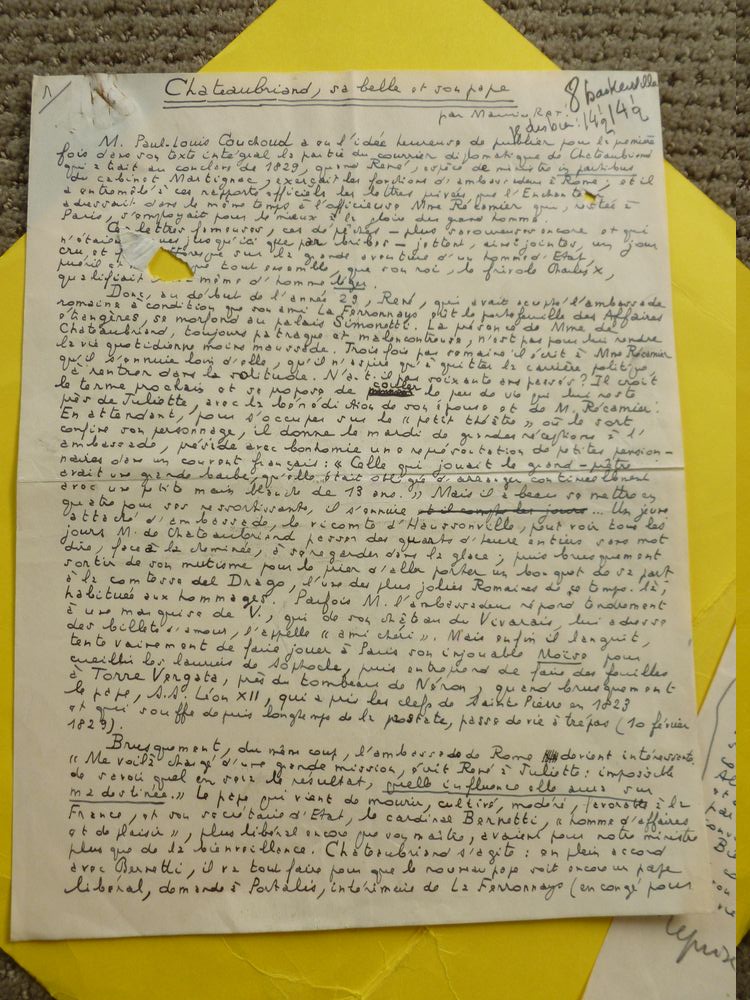 1/
Chateaubriand, sa belle et son pape
8 baskerville
par Maurice Rat
M. Paul-Louis Couchoud a eu l'idée heureuse de publier pour la première
fois dans son texte intégral la partie du courrier diplomatique de Chateaubriand
qui a trait au conclave de 1829, quand René, espèce de ministre in partibus
du cabinet Martignac, exerçait les fonctions d'ambassadeur à Rome, et il
a entremêlé à ces rapports officiels les lettres privées que l'Enchanteur
adressait dans le même temps à l'officieuse Mme Récamier qui, restée à
Paris, s'employait pour le mieux à la gloire du grand homme.
Ces lettres fameuses, ces dépêches – plus savoureuses encore et qui
n'étaient jusqu'ici que par bribes – jettent, ainsi jointes, un jour
cru et sur la grande aventure d'un homme d'Etat,
puéril et tout ensemble, que son roi, le frivole Charles X,
qualifiait même d'homme léger.
Donc, au début de l'année 29, René, qui avait accepté l'ambassade
romaine à condition que son ami La Ferronnays eût le portefeuille des Affaires
étrangères, se morfond au palais Simonetti. La présence de Mme de
Chateaubriand, toujours patraque et malencontreuse, n'est pas pour lui rendre
la vie quotidienne moins maussade. Trois fois par semaine il écrit à Mme Récamier
qu'il s'ennuie loin d'elle, qu'il n'aspire qu'à quitter la carrière politique,
à rentrer dans la solitude. N'a-t-il pas soixante ans passés ? Il croit
le terme prochain et se propose de couler le peu de vie qui lui reste
près de Juliette, avec la bénédiction de son épouse et de M. Récamier.
En attendant, pour s'occuper sur le « petit théâtre » où le sort
confine son personnage, il donne le mardi de grandes réceptions à l'
ambassade, préside avec bonhomie une représentation de petites pension-
naires dans un couvent français : « Celle qui jouait le grand-prêtre
avait une grande barbe qu'elle était obligée d'arranger continuellement
avec une petite main blanche de 13 ans. » Mais il a beau se mettre en
quatre pour ses ressortissants, il s'ennuie et il compte les jours... Un jeune
attaché d'ambassade, le vicomte d'Haussonville, peut voir tous les
jours M. de Chateaubriand passer des quarts d'heure entiers sans mot
dire, face à la cheminée, à se regarder dans la glace ; puis brusquement
sortir de son mutisme pour le prier d'aller porter un bouquet de sa part
à la comtesse del Drago, l'une des plus jolies Romaines de ce temps-là,
habituée aux hommages. Parfois M. l'ambassadeur répond tendrement
à une marquise de V., qui de son château du Vivarais, lui adresse
des billets d'amour, l'appelle « ami chéri ». Mais enfin il languit,
tente vainement de faire jouer à Paris son injouable Moïse pour
cueillir les lauriers de Sophocle, puis entreprend de faire des fouilles
à Torre Vergata, près du tombeau de Néron, quand brusquement
le pape, S.S. Léon XII, qui a pris les clefs de Sainte Pierre en 1823
et qui souffre depuis longtemps de la prostate, passe de vie à trépas (10 février
1829).
Brusquement, du même coup, l'ambassade de Rome devient intéressante.
« Me voilà chargé d'une grande mission, écrit René à Juliette : impossible
de savoir quel en sera le résultat, quelle influence elle aura sur
ma destinée. » Le pape qui vient de mourir, cultivé, modéré, favorable à la
France, et son secrétaire d'Etat, le cardinal Bernetti, « homme d'affaires
et de plaisir », plus libéral encore que son maître, avaient pour notre ministre
plus que de la bienveillance. Chateaubriand s'agite : en plein accord
avec Bernetti, il va tout faire pour que le nouveau pape soit encore un pape
libéral, demande à Portalis, intérimaire de La Ferronnays (en congé pour